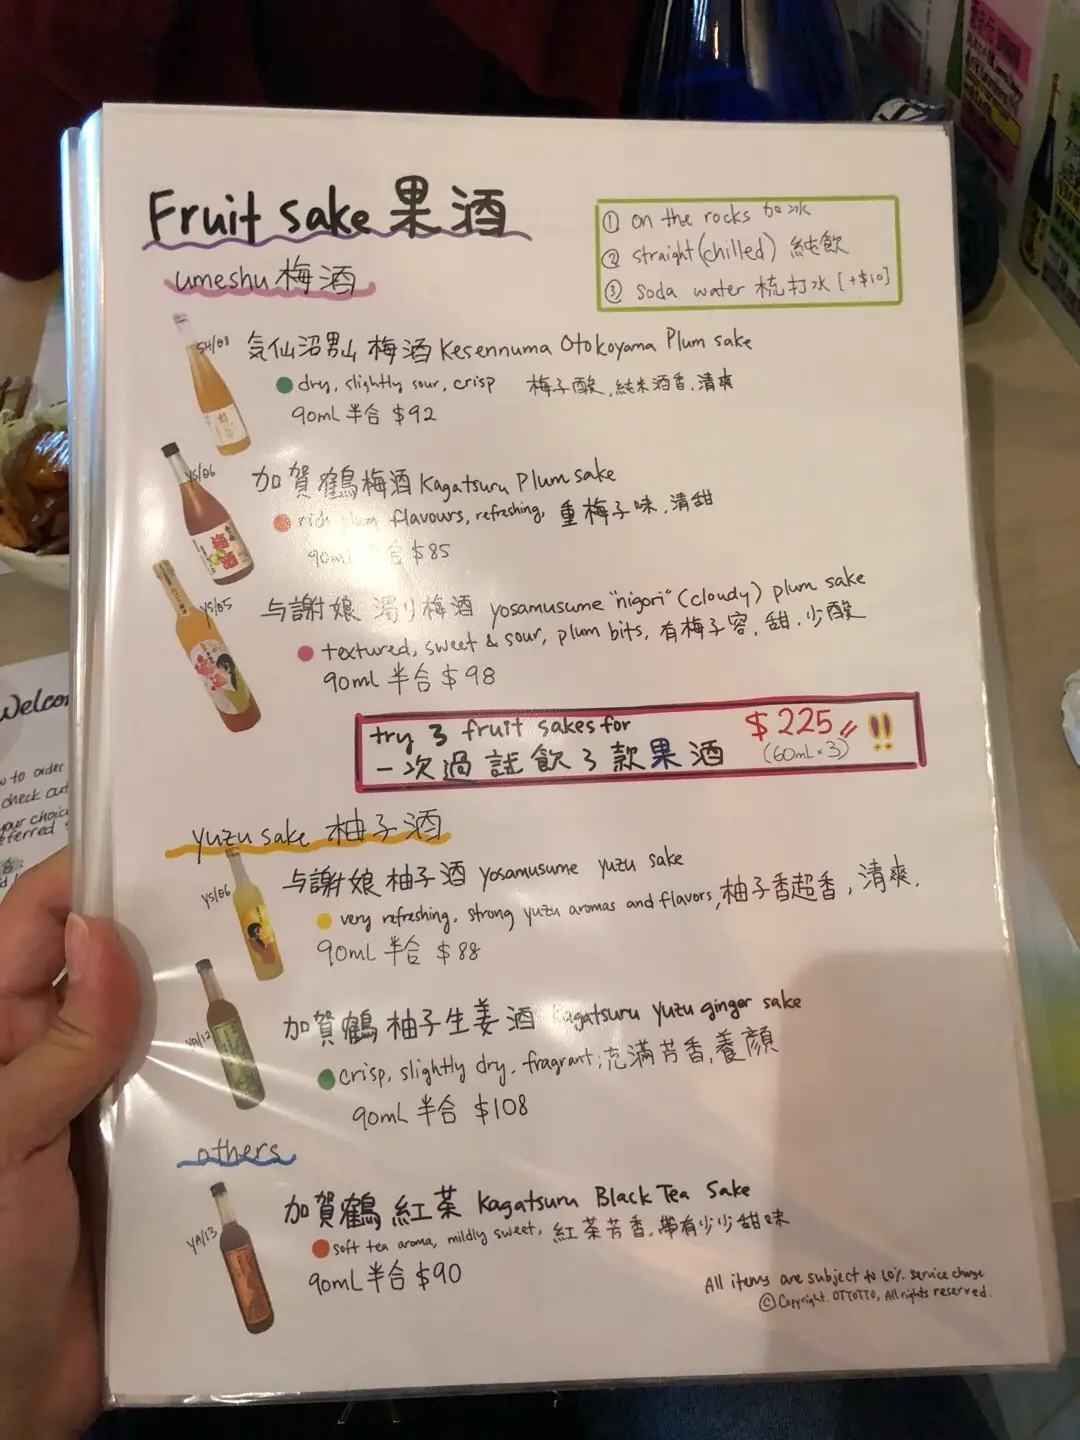 Fruit sake 果酒
① on the rocks 加冰
② straight (chilled) 純飲
③ soda water 梳打水 [+$10]
umeshu 梅酒
SH/08
気仙沼男山 梅酒 Kesennuma Otokoyama Plum sake
dry, slightly sour, crisp 梅子酸, 純米酒香, 清爽
90mL 半合 $92
YS/06
加賀鶴梅酒 Kagatsuru Plum sake
rich plum flavours, refreshing, 重梅子味, 清甜
90mL 半合 $85
YS/05
与謝娘 濁り梅酒 yosamusume "nigori" (cloudy) plum sake
textured, sweet & sour, plum bits, 有梅子容, 甜, 少酸
90mL 半合 $98
try 3 fruit sakes for $225!!
一次過試飲3款果酒 (60mL×3)
yuzu sake 柚子酒
YS/06
与謝娘 柚子酒 yosamusume yuzu sake
very refreshing, strong yuzu aromas and flavors, 柚子香超香, 清爽.
90mL 半合 $88
YA/12
加賀鶴 柚子生姜酒 Kagatsuru yuzu ginger sake
crisp, slightly dry, fragrant, 充滿芳香, 養顏
90mL 半合 $108
others
YA/13
加賀鶴 紅茶 Kagatsuru Black Tea Sake
soft tea aroma, mildly sweet, 紅茶芳香, 帶有少少甜味
90mL 半合 $90
All items are subject to 10% service charge
© Copyright. OTTOTTO, All rights reserved.
Welco
to order
check out
your choic